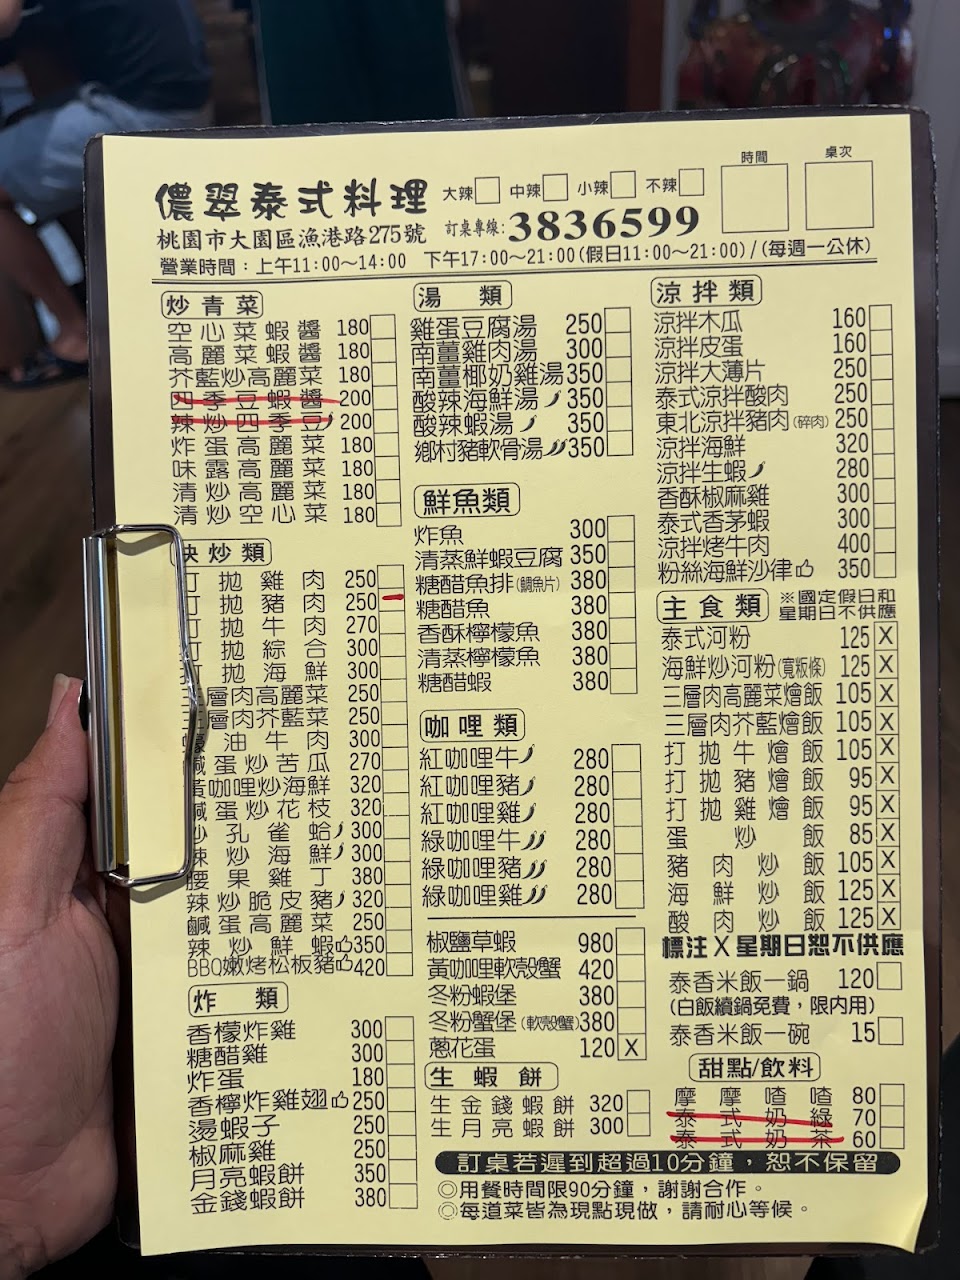 儂翠泰式料理
大辣 中辣 小辣 不辣
時間
桌次
桃園市大園區漁港路275號
訂桌專線:3836599
營業時間:上午11:00～14:00 下午17:00～21:00(假日11:00～21:00)/(每週一公休)
炒青菜
空心菜蝦醬 180
高麗菜蝦醬 180
芥藍炒高麗菜 180
四季豆蝦醬 200
辣炒四季豆 200
炸蛋高麗菜 180
味露高麗菜 180
清炒高麗菜 180
清炒空心菜 180
快炒類
打拋雞肉 250
打拋豬肉 250
打拋牛肉 270
打拋綜合 300
打拋海鮮 300
三層肉高麗菜 250
三層肉芥藍菜 250
蠔油牛肉 300
鹹蛋炒苦瓜 270
黃咖哩炒海鮮 320
鹹蛋炒花枝 320
炒孔雀蛤 300
辣炒海鮮 300
腰果雞丁 380
辣炒脆皮豬 320
鹹蛋高麗菜 250
辣炒鮮蝦 350
BBQ嫩烤松板豬 420
炸類
香檬炸雞 300
糖醋雞 300
炸蛋 180
香檸炸雞翅 250
燙蝦子 250
椒麻雞 250
月亮蝦餅 350
金錢蝦餅 380
湯類
雞蛋豆腐湯 250
南薑雞肉湯 300
南薑椰奶雞湯 350
酸辣海鮮湯 350
酸辣蝦湯 350
鄉村豬軟骨湯 350
鮮魚類
炸魚 300
清蒸鮮蝦豆腐 350
糖醋魚排(鯛魚片) 380
糖醋魚 380
香酥檸檬魚 380
清蒸檸檬魚 380
糖醋蝦 380
咖哩類
紅咖哩牛 280
紅咖哩豬 280
紅咖哩雞 280
綠咖哩牛 280
綠咖哩豬 280
綠咖哩雞 280
椒鹽草蝦 980
黃咖哩軟殼蟹 420
冬粉蝦堡 380
冬粉蟹堡(軟殼蟹) 380
蔥花蛋 120 X
生蝦餅
生金錢蝦餅 320
生月亮蝦餅 300
涼拌類
涼拌木瓜 160
涼拌皮蛋 160
涼拌大薄片 250
泰式涼拌酸肉 250
東北涼拌豬肉(碎肉) 250
涼拌海鮮 320
涼拌生蝦 280
香酥椒麻雞 300
泰式香茅蝦 300
涼拌烤牛肉 400
粉絲海鮮沙律 350
主食類
※國定假日和
星期日不供應
泰式河粉 125 X
海鮮炒河粉(寬粄條) 125 X
三層肉高麗菜燴飯 105 X
三層肉芥藍燴飯 105 X
打拋牛燴飯 105 X
打拋豬燴飯 95 X
打拋雞燴飯 95 X
蛋炒飯 85 X
豬肉炒飯 105 X
海鮮炒飯 125 X
酸肉炒飯 125 X
標注X星期日恕不供應
泰香米飯一鍋 120
(白飯續鍋免費，限內用)
泰香米飯一碗 15
甜點/飲料
摩摩喳喳 80
泰式奶綠 70
泰式奶茶 60
訂桌若遲到超過10分鐘，恕不保留
◎用餐時間限90分鐘，謝謝合作。
◎每道菜皆為現點現做，請耐心等候。